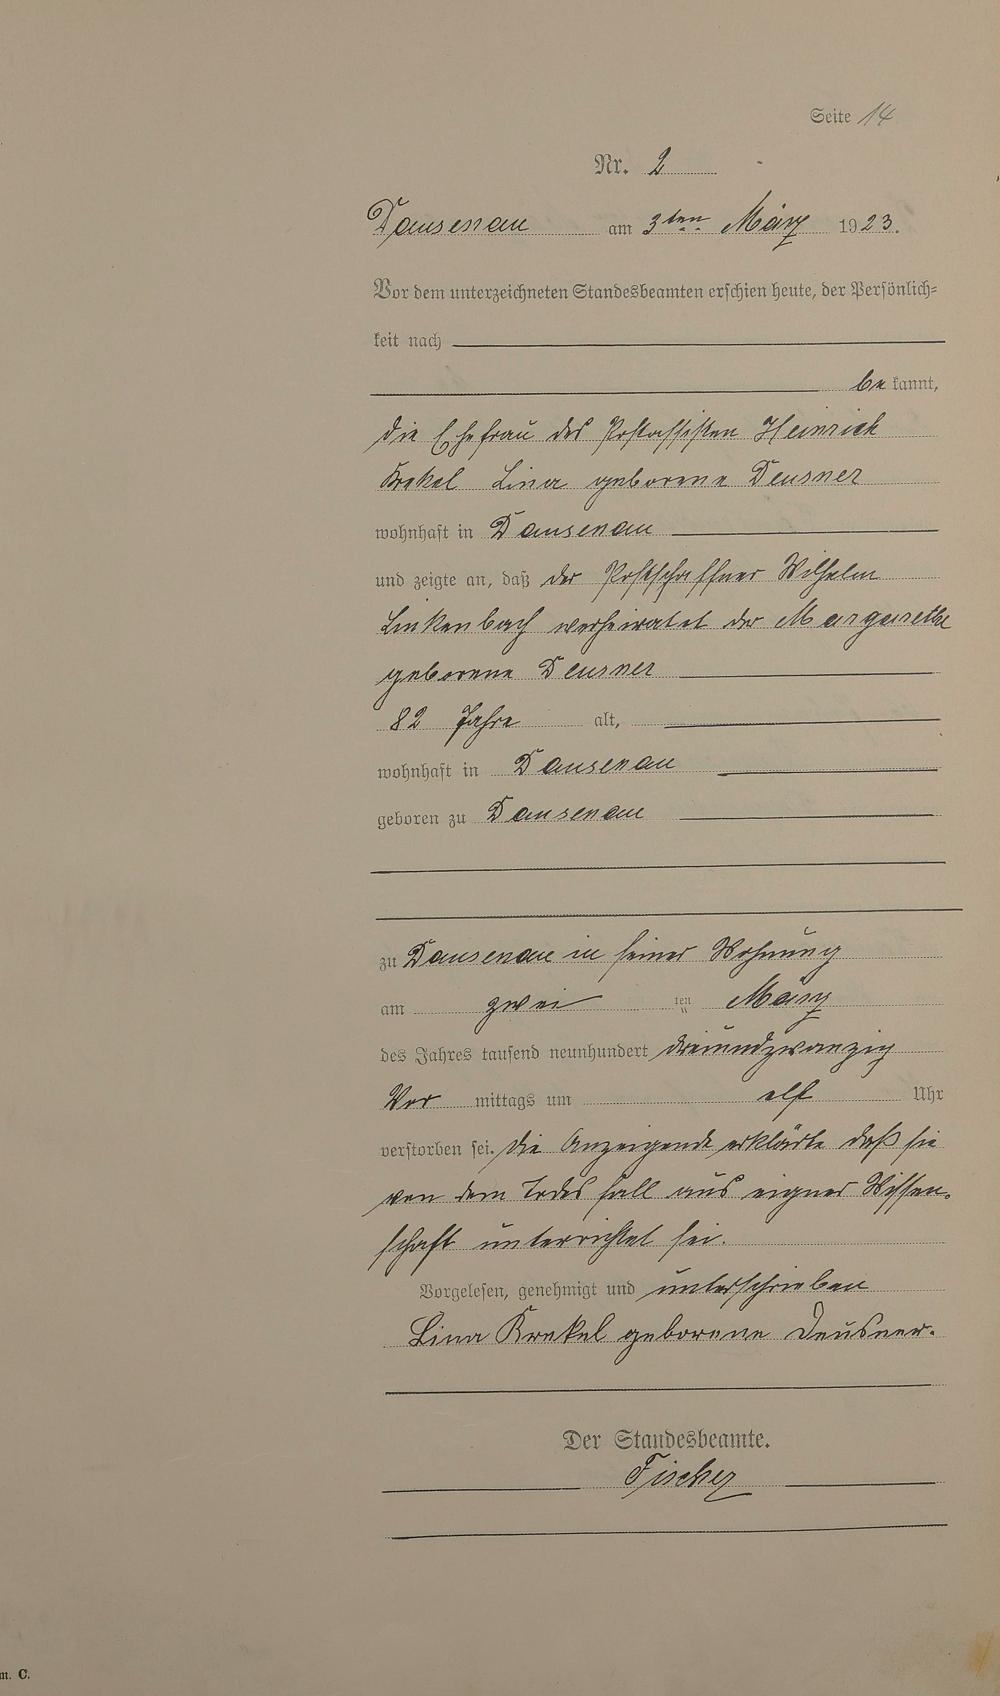 Seite 14
Nr. 2
Dausenau am 3ten März 1923.
Vor dem unterzeichneten Standesbeamten erschien heute, der Persönlich-
keit nach
bekannt,
die Ehefrau des Postassisten Heinrich
Krekel Lina geborene Deusner
wohnhaft in Dausenau
und zeigte an, daß der Postschaffner Wilhelm
Linkenbach verheiratet der Margarethe
geborene Deusner
82 Jahre alt,
wohnhaft in Dausenau
geboren zu Dausenau
zu Dausenau in seiner Wohnung
am zwei ten März
des Jahres tausend neunhundert dreiundzwanzig
Vor mittags um elf Uhr
verstorben sei. Die Anzeigende erklärte daß sie
von dem Todes fall aus eigner Wissen-
schaft unterrichtet sei.
Vorgelesen, genehmigt und unterschrieben
Lina Krekel geborene Deusner.
Der Standesbeamte.
Fischer
m. C.